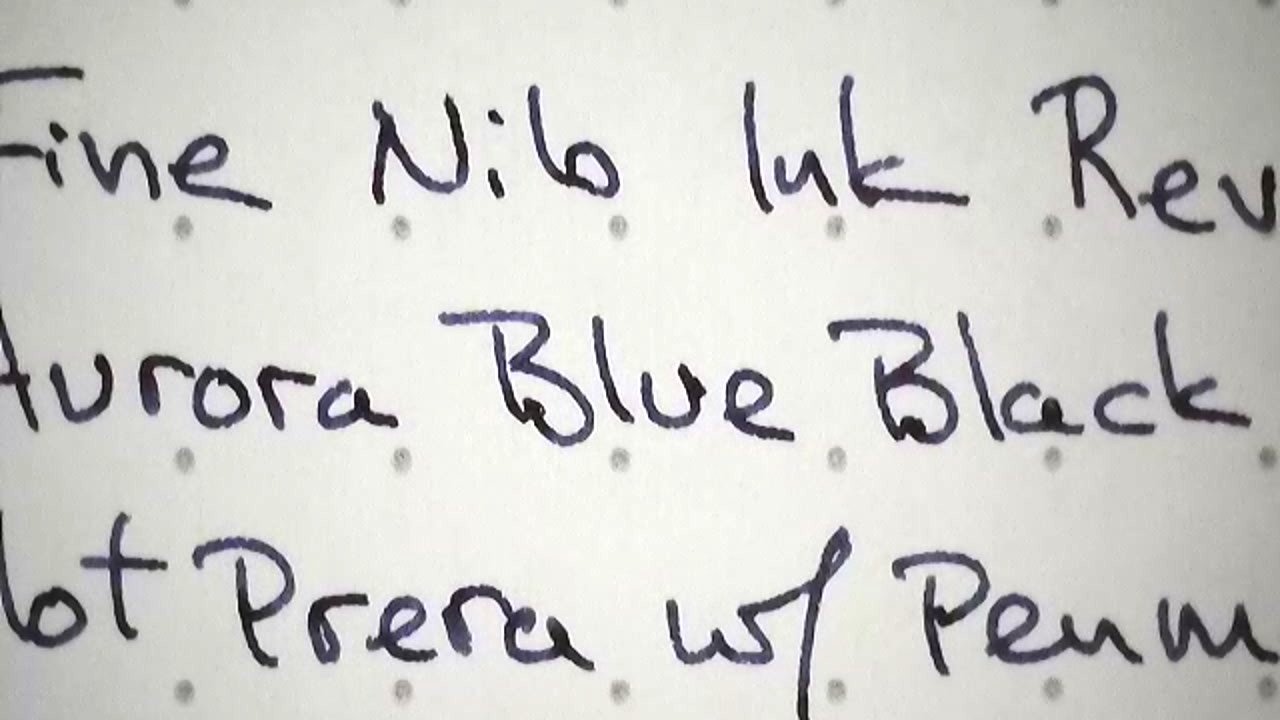 Fine Nib Ink Rev
Aurora Blue Black
lot Prera w/ Penm